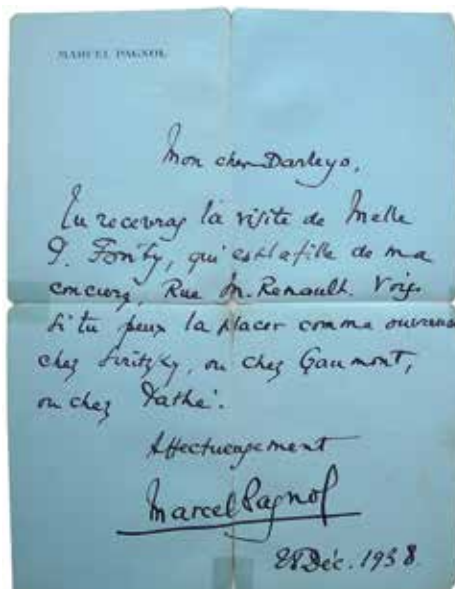 MARCEL PAGNOL
Mon cher Darleys,
Tu recevras la visite de Melle
qui est la fille de ma
concierg, Rue M. Renault. Vois
si tu peux la placer comme ouvreuse
chez Siritzky, ou chez Gaumont,
ou chez Pathé.
Affectueusement
Marcel Pagnol
Déc. 1938.